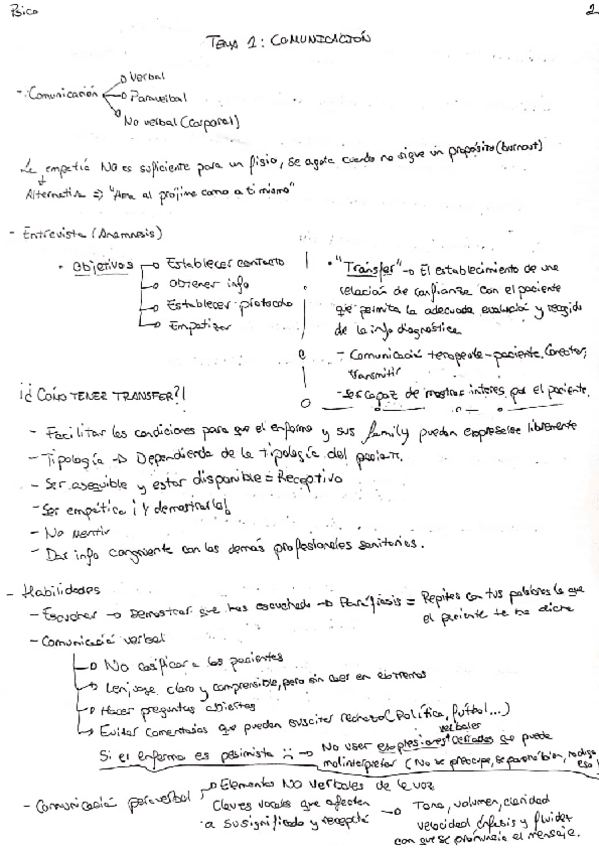 Psico
2
TEMA 1: COMUNICACIÓN
- Comunicación → Verbal
→ Paraverbal
→ No verbal (Corporal)
La empatía NO es suficiente para un fisio, se agota cuando no sigue un propósito (burnout)
Alternativa ⇒ "Ama al prójimo como a ti mismo"
- Entrevista (Anamnesis)
• Objetivos → Establecer contacto
→ Obtener info
→ Establecer protocolo
→ Empatizar
• "Transfer" → El establecimiento de una
relación de confianza con el paciente
que permita la adecuada evaluación y recogida
de la info diagnóstica
- Comunicació terapeuta-paciente, Conectar,
transmitir
- Ser capaz de mostrar interés por el paciente.
¡¿CÓMO TENER TRANSFER?!
- Facilitar las condiciones para que el enfermo y sus family puedan expresarse libremente
- Tipología → Dependiendo de la tipología del pacient.
- Ser asequible y estar disponible = Receptivo
- Ser empático ¡Y demostrarlo!
- No mentir
- Dar info congruente con los demás profesionales sanitarios.
- Habilidades
- Escuchar → Demostrar que has escuchado → Paráfrasis = Repites con tus palabras lo que
el paciente te ha dicho
- Comunicació verbal
→ No clasificar a los pacientes
→ Lenguaje claro y comprensible, pero sin caer en extremos
→ Hacer preguntas abiertas
→ Evitar comentarios que puedan suscitar rechazo (Política, futbol...)
Si el enfermo es pesimista :( → No usar expresiones verbales cerradas que puede
malinterpretar (No se preocupe, se pondrá bien, eso)
- Comunicació paraverbal → Elementos NO verbales de la voz
Claves vocales que afectan
a su significado y recepció → Tono, volumen, claridad
velocidad énfasis y fluidez
con que se pronuncia el mensaje.